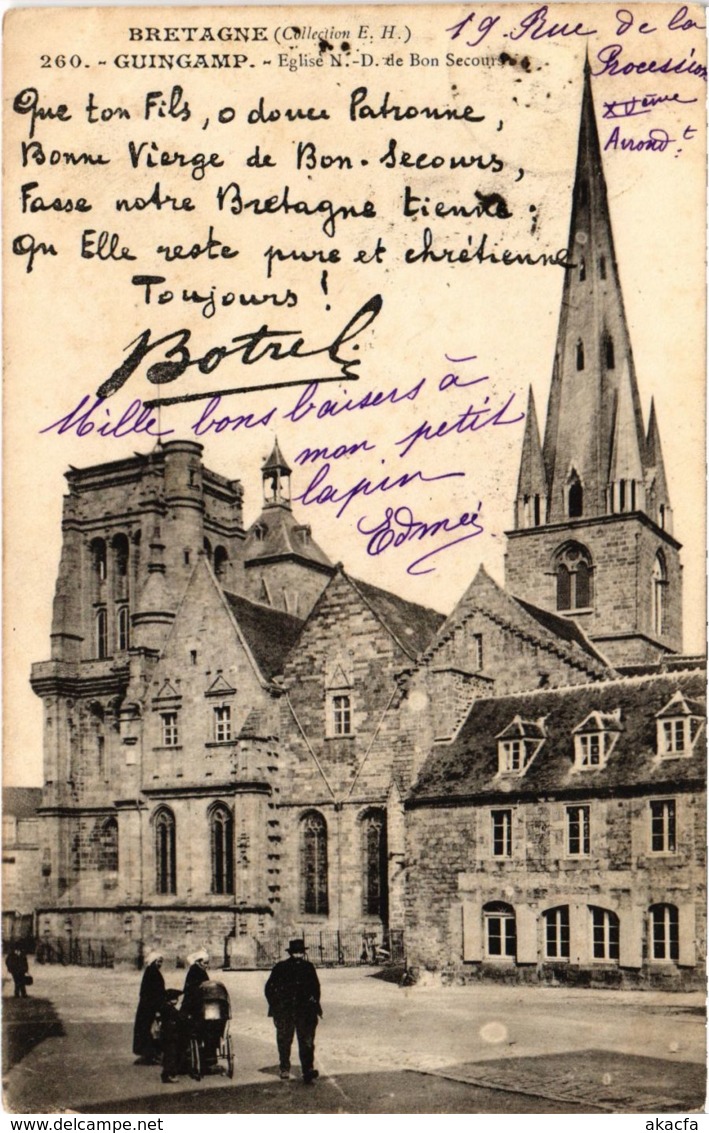 BRETAGNE (Collection E. H.)
260. - GUINGAMP. - Eglise N.-D. de Bon Secours
19 Rue de la
Procession
XVème
Arrondt
Que ton Fils, o douce Patronne,
Bonne Vierge de Bon-Secours,
Fasse notre Bretagne tienne :
Qu'Elle reste pure et chrétienne
Toujours !
Botrel
Mille bons baisers à
mon petit
lapin
Edmée
© akacfa
akacfa.com